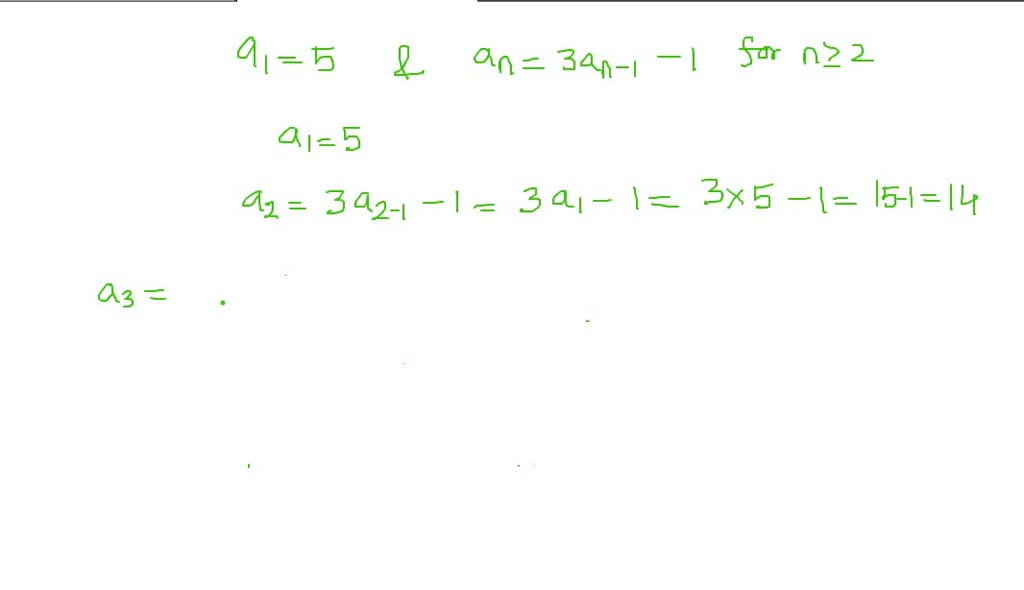 a₁ = 5 & aₙ = 3aₙ₋₁ - 1 for n ≥ 2
a₁ = 5
a₂ = 3a₂₋₁ - 1 = 3a₁ - 1 = 3 × 5 - 1 = 15-1 = 14
a₃ =